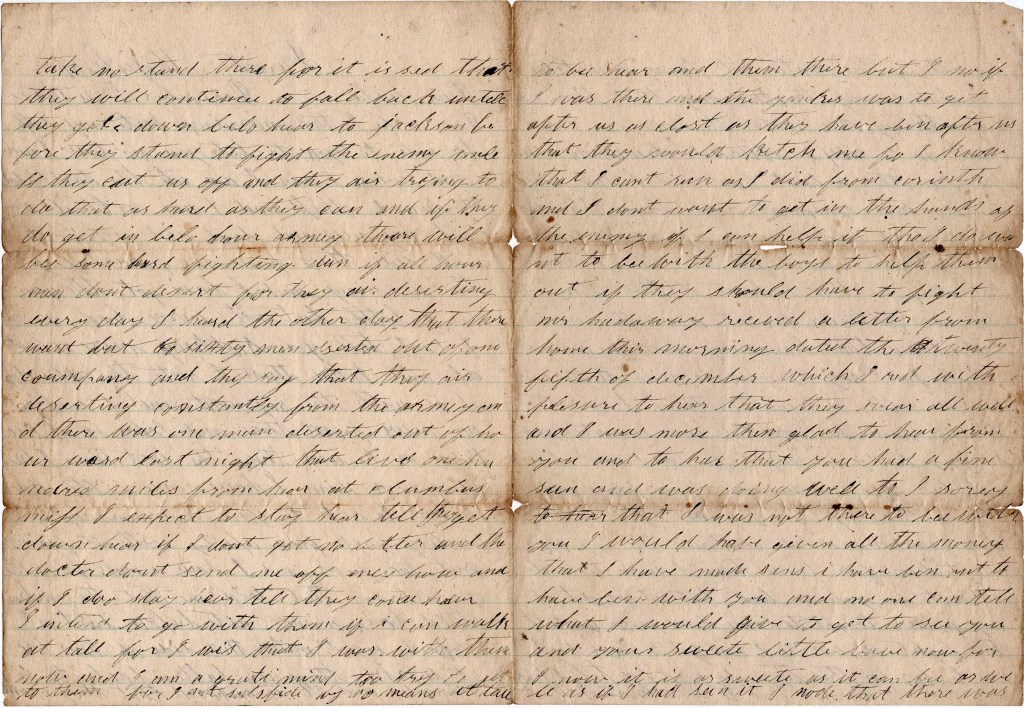 take no stand there for it is sed that
they will continue to fall back untell
they get down belo hear to jackson be
fore they stand to fight the enemy unle
ss they cut us off and they air trying to
do that as hard as they can and if they
do get in belo our armey thare will
bee some hard fighting dun if all our
men dont desert for they air deserting
every day I heard the other day that there
want but sixty men deserted out of our
coumpany and they say that they air
deserting constantly from the armey an
d there was one man deserted out of
ur ward last night that livd one hu
ndred miles from hear at clumbus
miss I expect to stay hear tell they get
down hear if I dont get no better and the
docter dount send me off and
if I doo stay hear tell they come hear
I intend to go with them if i can walk
at tall for I wis that I was with them
now and I am a grate mind too try to go
to them for I not satisfide by no means at tall
to bee hear and them there but I no if
I was there and the yankes was to get
after us as clost as they have ben after us
that they would ketch me fo I know
that I cant run as I did from corinth
and I dont want to get in the hands of
the enemy if I can help it tho I do wa
nt to bee with the boys to help them
out if they should have to fight
mr hadaway received a letter from
home this morning dated the twenty
fifth of december which I red with
plesure to hear that they wear all well
and I was more then glad to hear from
you and to hear that you had a fine
sun and was doing well to I sorey
to hear that I was not there to bee with
you I would have given all the money
that I have made sins i have ben out to
have ben with you and no one can tell
what I would give to get to see you
and your sweete little babe now for
I now it is as sweete as it can bee as we
ll as if I had seen it I node that there was